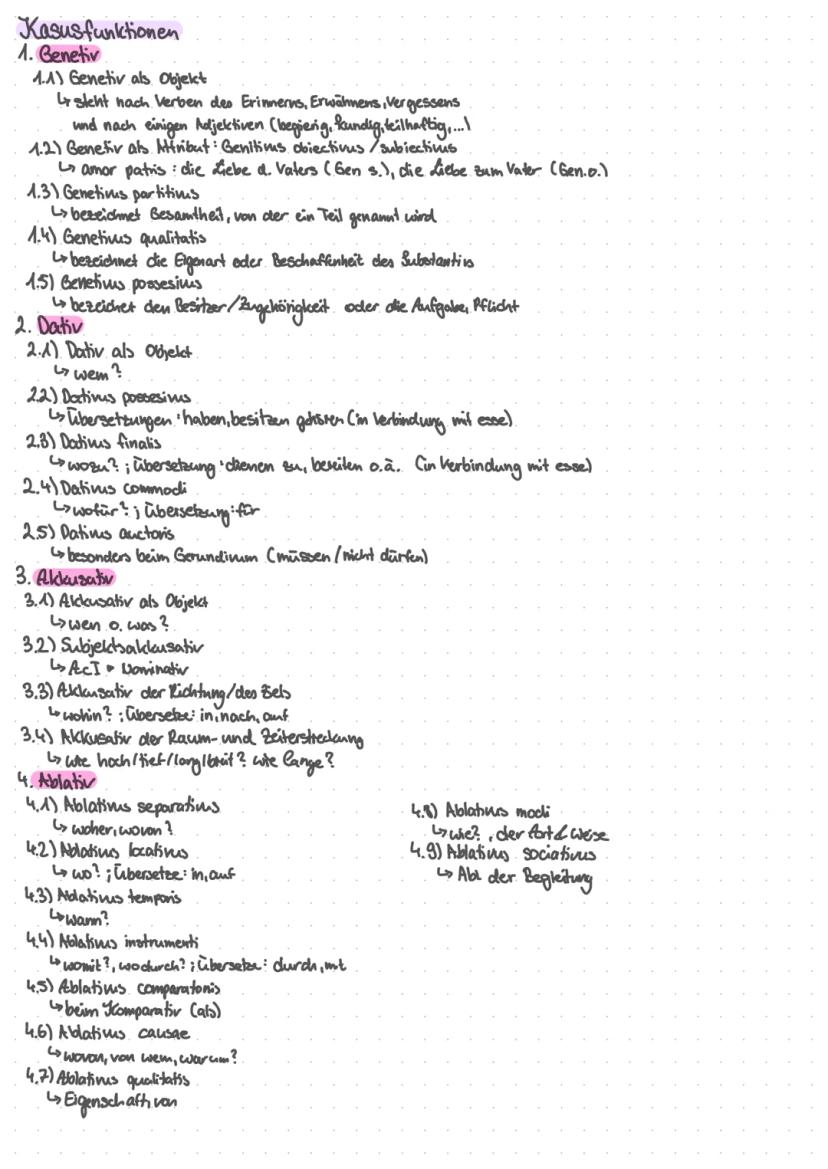 Kasusfunktionen
1. Genetiv
1.1) Genetiv als Objekt
↳ steht nach Verben des Erinnerns, Erwähnens, Vergessens
und nach einigen Adjektiven (begierig, kundig, teilhaftig,...)
1.2) Genetiv als Attribut: Genitivus obiectivus / subiectivus
↳ amor patris: die Liebe d. Vaters (Gen s.), die Liebe zum Vater (Gen.o.)
1.3) Genetivus partitivus
↳ bezeichnet Gesamtheit, von der ein Teil genannt wird
1.4) Genetivus qualitatis
↳ bezeichnet die Eigenart oder Beschaffenheit des Substantivs
1.5) Genetivus possesivus
↳ bezeichet den Besitzer/Zugehörigkeit oder die Aufgabe, Pflicht
2. Dativ
2.1) Dativ als Objekt
↳ wem?
2.2) Dativus possesivus
↳ Übersetzungen: haben, besitzen gehören (in Verbindung mit esse)
2.3) Dativus finalis
↳ wozu?; Übersetzung: dienen zu, bereiten o.ä. (in Verbindung mit esse)
2.4) Dativus commodi
↳ wofür?; Übersetzung: für
2.5) Dativus auctoris
↳ besonders beim Gerundivum (müssen/nicht dürfen)
3. Akkusativ
3.1) Akkusativ als Objekt
↳ wen o. was?
3.2) Subjektsakkusativ
↳ AcI ▸ Nominativ
3.3) Akkusativ der Richtung/des Ziels
↳ wohin?; Übersetze: in, nach, auf
3.4) Akkusativ der Raum- und Zeiterstreckung
↳ wie hoch/tief/lang/breit? wie lange?
4. Ablativ
4.1) Ablativus separativus
↳ woher, wovon?
4.2) Ablativus locativus
↳ wo?; Übersetze: in, auf
4.3) Ablativus temporis
↳ wann?
4.4) Ablativus instrumenti
↳ womit?, wodurch?; Übersetze: durch, mit
4.5) Ablativus comparationis
↳ beim Komparativ (als)
4.6) Ablativus causae
↳ wovon, von wem, warum?
4.7) Ablativus qualitatis
↳ Eigenschaft von
4.8) Ablativus modi
↳ wie?, der Art & Weise
4.9) Ablativus sociativus
↳ Abl der Begleitung